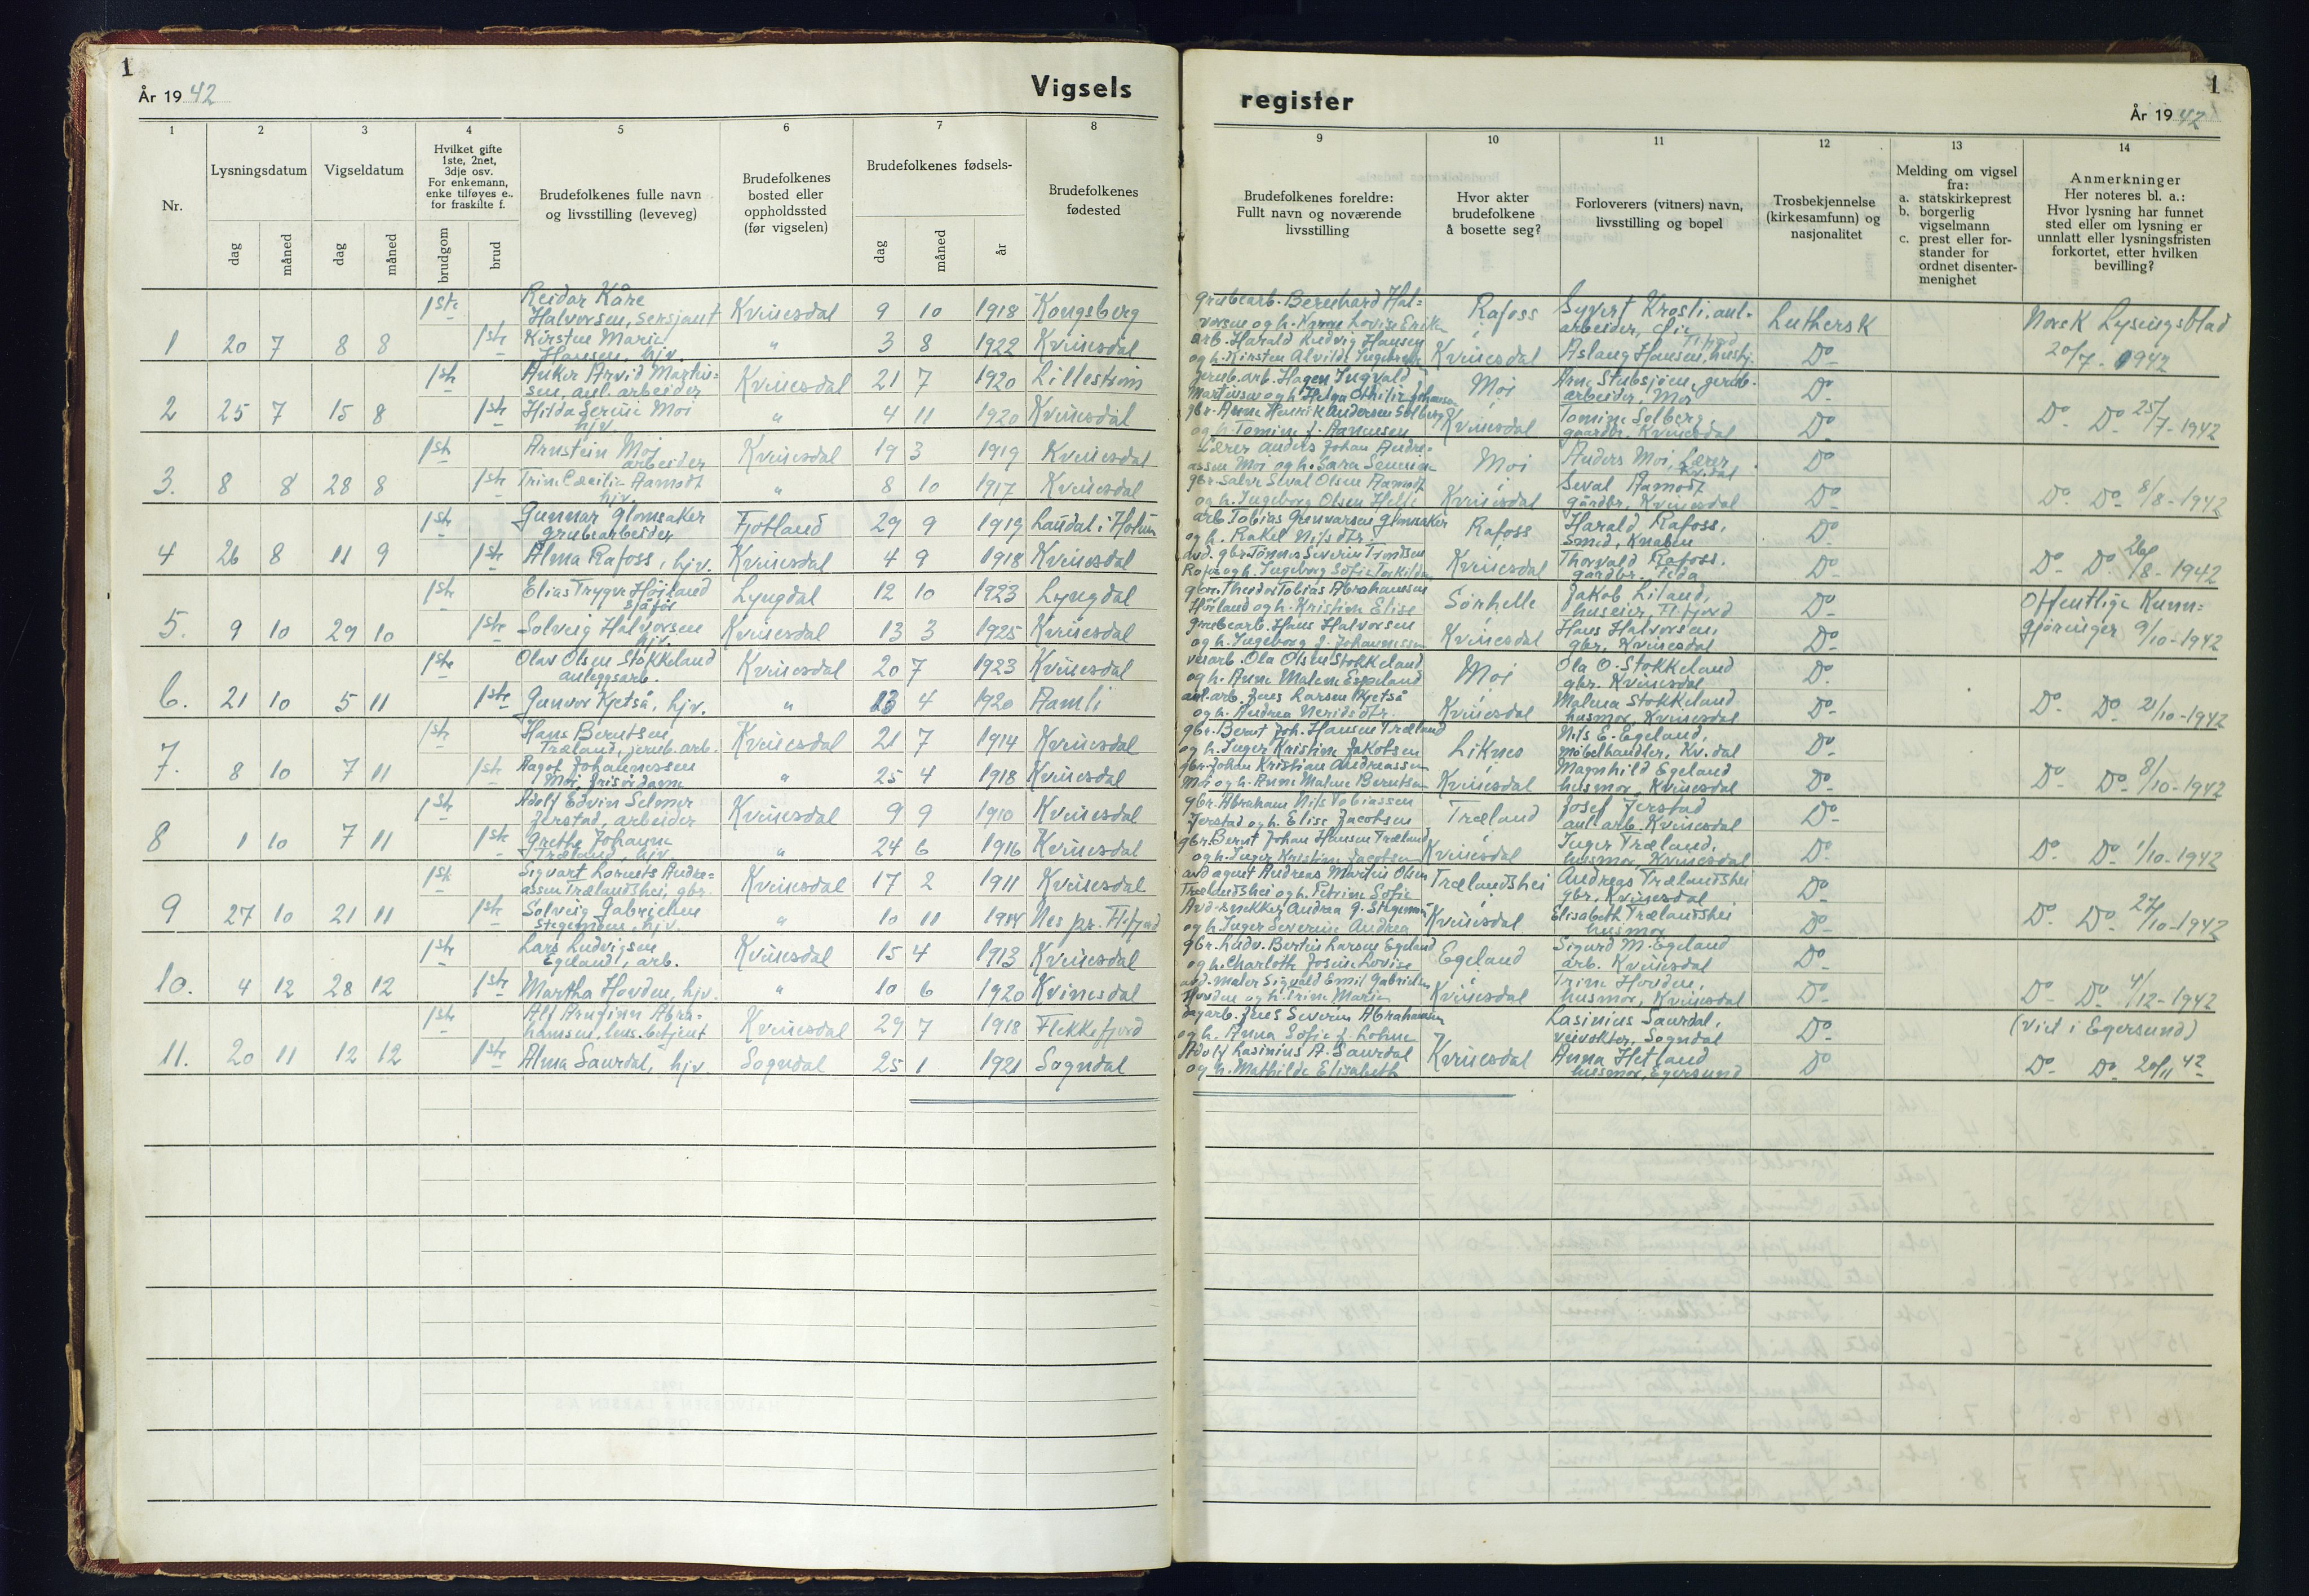 1
År 19 42
Vigsels
1 2 3 4 5 6 7 8
Nr.
Lysningsdatum
Vigseldatum
Hvilket gifte
1ste, 2net,
3dje osv.
For enkemann,
enke tilføyes e.,
for fraskilte f.
Brudefolkenes fulle navn
og livsstilling (leveveg)
Brudefolkenes
bosted eller
oppholdssted
(før vigselen)
Brudefolkenes fødsels-
Brudefolkenes
fødested
dag måned dag måned brudgom brud dag måned år
1ste Reidar Kåre
Halvorsen, sersjant Kvinesdal 9 10 1918 Kongsberg
1 20 7 8 8 1ste Kirsten Marie
Hansen, hjv. " 3 8 1922 Kvinesdal
1ste Anker Arvid Martin-
sen, anl. arbeider Kvinesdal 21 7 1920 Lillestrøm
2 25 7 15 8 1ste Hilda Serine Moi
hjv. " 4 11 1920 Kvinesdal
1ste Arnstein Moi
arbeider Kvinesdal 19 3 1919 Kvinesdal
3. 8 8 28 8 1ste Trine Cecilie Aamodt
hjv. " 8 10 1917 Kvinesdal
1ste Gunnar Glomsaker
grubearbeider Fjotland 29 9 1919 Laudal i Holum
4 26 8 11 9 1ste Alma Rafoss, hjv. Kvinesdal 4 9 1918 Kvinesdal
1ste Elias Trygve Höiland
sjåför Lyngdal 12 10 1923 Lyngdal
5. 9 10 29 10 1ste Solveig Halvorsen
hjv. Kvinesdal 13 3 1925 Kvinesdal
1ste Olav Olsen Stokkeland
anleggsarb. Kvinesdal 20 7 1923 Kvinesdal
6. 21 10 5 11 1ste Gunvor Kjetså, hjv. " 4 1920 Aamli
1ste Hans Berntsen
Træland, jernb. arb. Kvinesdal 21 7 1914 Kvinesdal
7. 8 10 7 11 1ste Aagot Johannessen
Moi, frisördame " 25 4 1918 Kvinesdal
1ste Adolf Edvin Selmer
Jerstad, arbeider Kvinesdal 9 9 1910 Kvinesdal
8 1 10 7 11 1ste Grethe Johanne
Træland, hjv. " 24 6 1916 Kvinesdal
1ste Sigvart Lornets Andre-
assen Trælandshei, gbr. Kvinesdal 17 2 1911 Kvinesdal
9 27 10 21 11 1ste Solveig Gabrielsen
Stegemoen, hjv. " 10 11 1914 Nes pr. Fl.fjord
1ste Lars Ludvigsen
Egeland, arb. Kvinesdal 15 4 1913 Kvinesdal
10. 4 12 28 12 1ste Martha Hovden, hjv. " 10 6 1920 Kvinesdal
1ste Alf Arnginn Abra-
hamsen, lens. betjent Kvinesdal 29 7 1918 Flekkefjord
11. 20 11 12 12 1ste Alma Saurdal, hjv. Sogndal 25 1 1921 Sogndal
register
1
År 19 42
9 10 11 12 13 14
Brudefolkenes foreldre:
Fullt navn og noværende
livsstilling
Hvor akter
brudefolkene
å bosette seg?
Forloverers (vitners) navn,
livsstilling og bopel
Trosbekjennelse
(kirkesamfunn) og
nasjonalitet
Melding om vigsel
fra:
a. statskirkeprest
b. borgerlig
vigselmann
c. prest eller for-
stander for
ordnet disenter-
menighet
Anmerkninger
Her noteres bl. a.:
Hvor lysning har funnet
sted eller om lysning er
unnlatt eller lysningsfristen
forkortet, etter hvilken
bevilling?
grubearb. Bernhard Hal-
vorsen og h. Lovise Rafoss Syvert Krosli, anl.
arbeider, Luthersk Norsk Lysingsblad
arb. Harald Ludvig Hansen
og h. Kirsten Alvilde Kvinesdal Aslaug Hansen, Do 20/7 - 1942
jernb.arb. Hagen Ingvald
Martinsen og h. Helga Othilie Moi Arne Stubsjöen, jernb.
arbeider, Moi Do
gbr. Henrik Andersen Solberg
og h. Tomine f. Aamesen Kvinesdal Tomine Solberg
gaardbr., Kvinesdal Do Do Do 25/7 - 1942
Lærer Anders Johan Andre-
assen Moi og h. Sara Moi Anders Moi, Lærer
Kv.dal Do
gbr. Salve Seval Olsen Aamodt
og h. Ingeborg Olsen Kvinesdal Seval Aamodt
gårdbr., Kvinesdal Do Do Do 8/8 - 1942
arb. Tobias Gunnarsen Glomsaker
og h. Rakel Nilsdtr. Rafoss Harald Rafoss,
smed, Knaben Do
avd. gbr. Tönnes Severin
og h. Ingeborg Sofie Kvinesdal Thorvald Rafoss,
gårdbr. Feda Do Do Do 26/8 - 1942
gbr. Theodor Tobias Abrahamsen
Höiland og h. Kristine Elise Sörhelle Jakob Liland,
huseier, Fl.fjord Do Offentlige Kunn-
grubearb. Hans Halvorsen
og h. Ingeborg f. Johannessen Kvinesdal Hans Halvorsen,
gbr. Kvinesdal Do gjöringer 9/10 - 1942
veiarb. Ola Olsen Stokkeland
og h. Anne Malene Espeland Moi Ola O. Stokkeland
gbr. Kvinesdal Do
anl. arb. Jens Larsen Kjetså
og h. Andrea Kvinesdal Malena Stokkeland
husmor, Kvinesdal Do Do Do 21/10 - 1942
gbr. Bernt Joh. Hansen Træland
og h. Inger Kristine Jakobsen Liknes Nils E. Egeland,
möbelhandler, Kv.dal Do
gbr. Johan Kristian Andreassen
Moi og h. Anne Malene Berntsen Kvinesdal Magnhild Egeland
husmor, Kvinesdal Do Do Do 8/10 - 1942
gbr. Abraham Nils Tobiassen
Jerstad og h. Elise Jacobsen Træland Josef Jerstad
anl. arb. Kvinesdal Do
gbr. Bernt Johan Hansen Træland
og h. Inger Kristine Jacobsen Kvinesdal Inger Træland,
husmor, Kvinesdal Do Do Do 1/10 - 1942
avd agent Andreas Martin Olsen
Trælandshei og h. Petrine Sofie Trælandshei Andreas Trælandshei
gbr, Kvinesdal Do
Avd. snekker Andrea G. Stegemoen
og h. Inger Severine Andrea Kvinesdal Elisabeth Trælandshei
husmor Do Do Do 27/10 - 1942
gbr. Ludv. Bertin Larsen Egeland
og h. Charlotte Josine Lovise Egeland Sigurd M. Egeland
arb. Kvinesdal Do
avd. maler Sigvald Emil Gabrielsen
Hovden og h. Trine Marie Kvinesdal Trine Hovden,
husmor, Kvinesdal Do Do Do 4/12 - 1942
dagarb. Jens Severin Abrahamsen
og h. Anna Sofie f. Lohne Lasinius Saurdal,
veivokter, Sogndal Do (Viet i Egersund)
Adolf Lasinius A. Saurdal
og h. Mathilde Elisabeth Kvinesdal Anna Hetland
husmor, Egersund Do Do Do 20/11 42